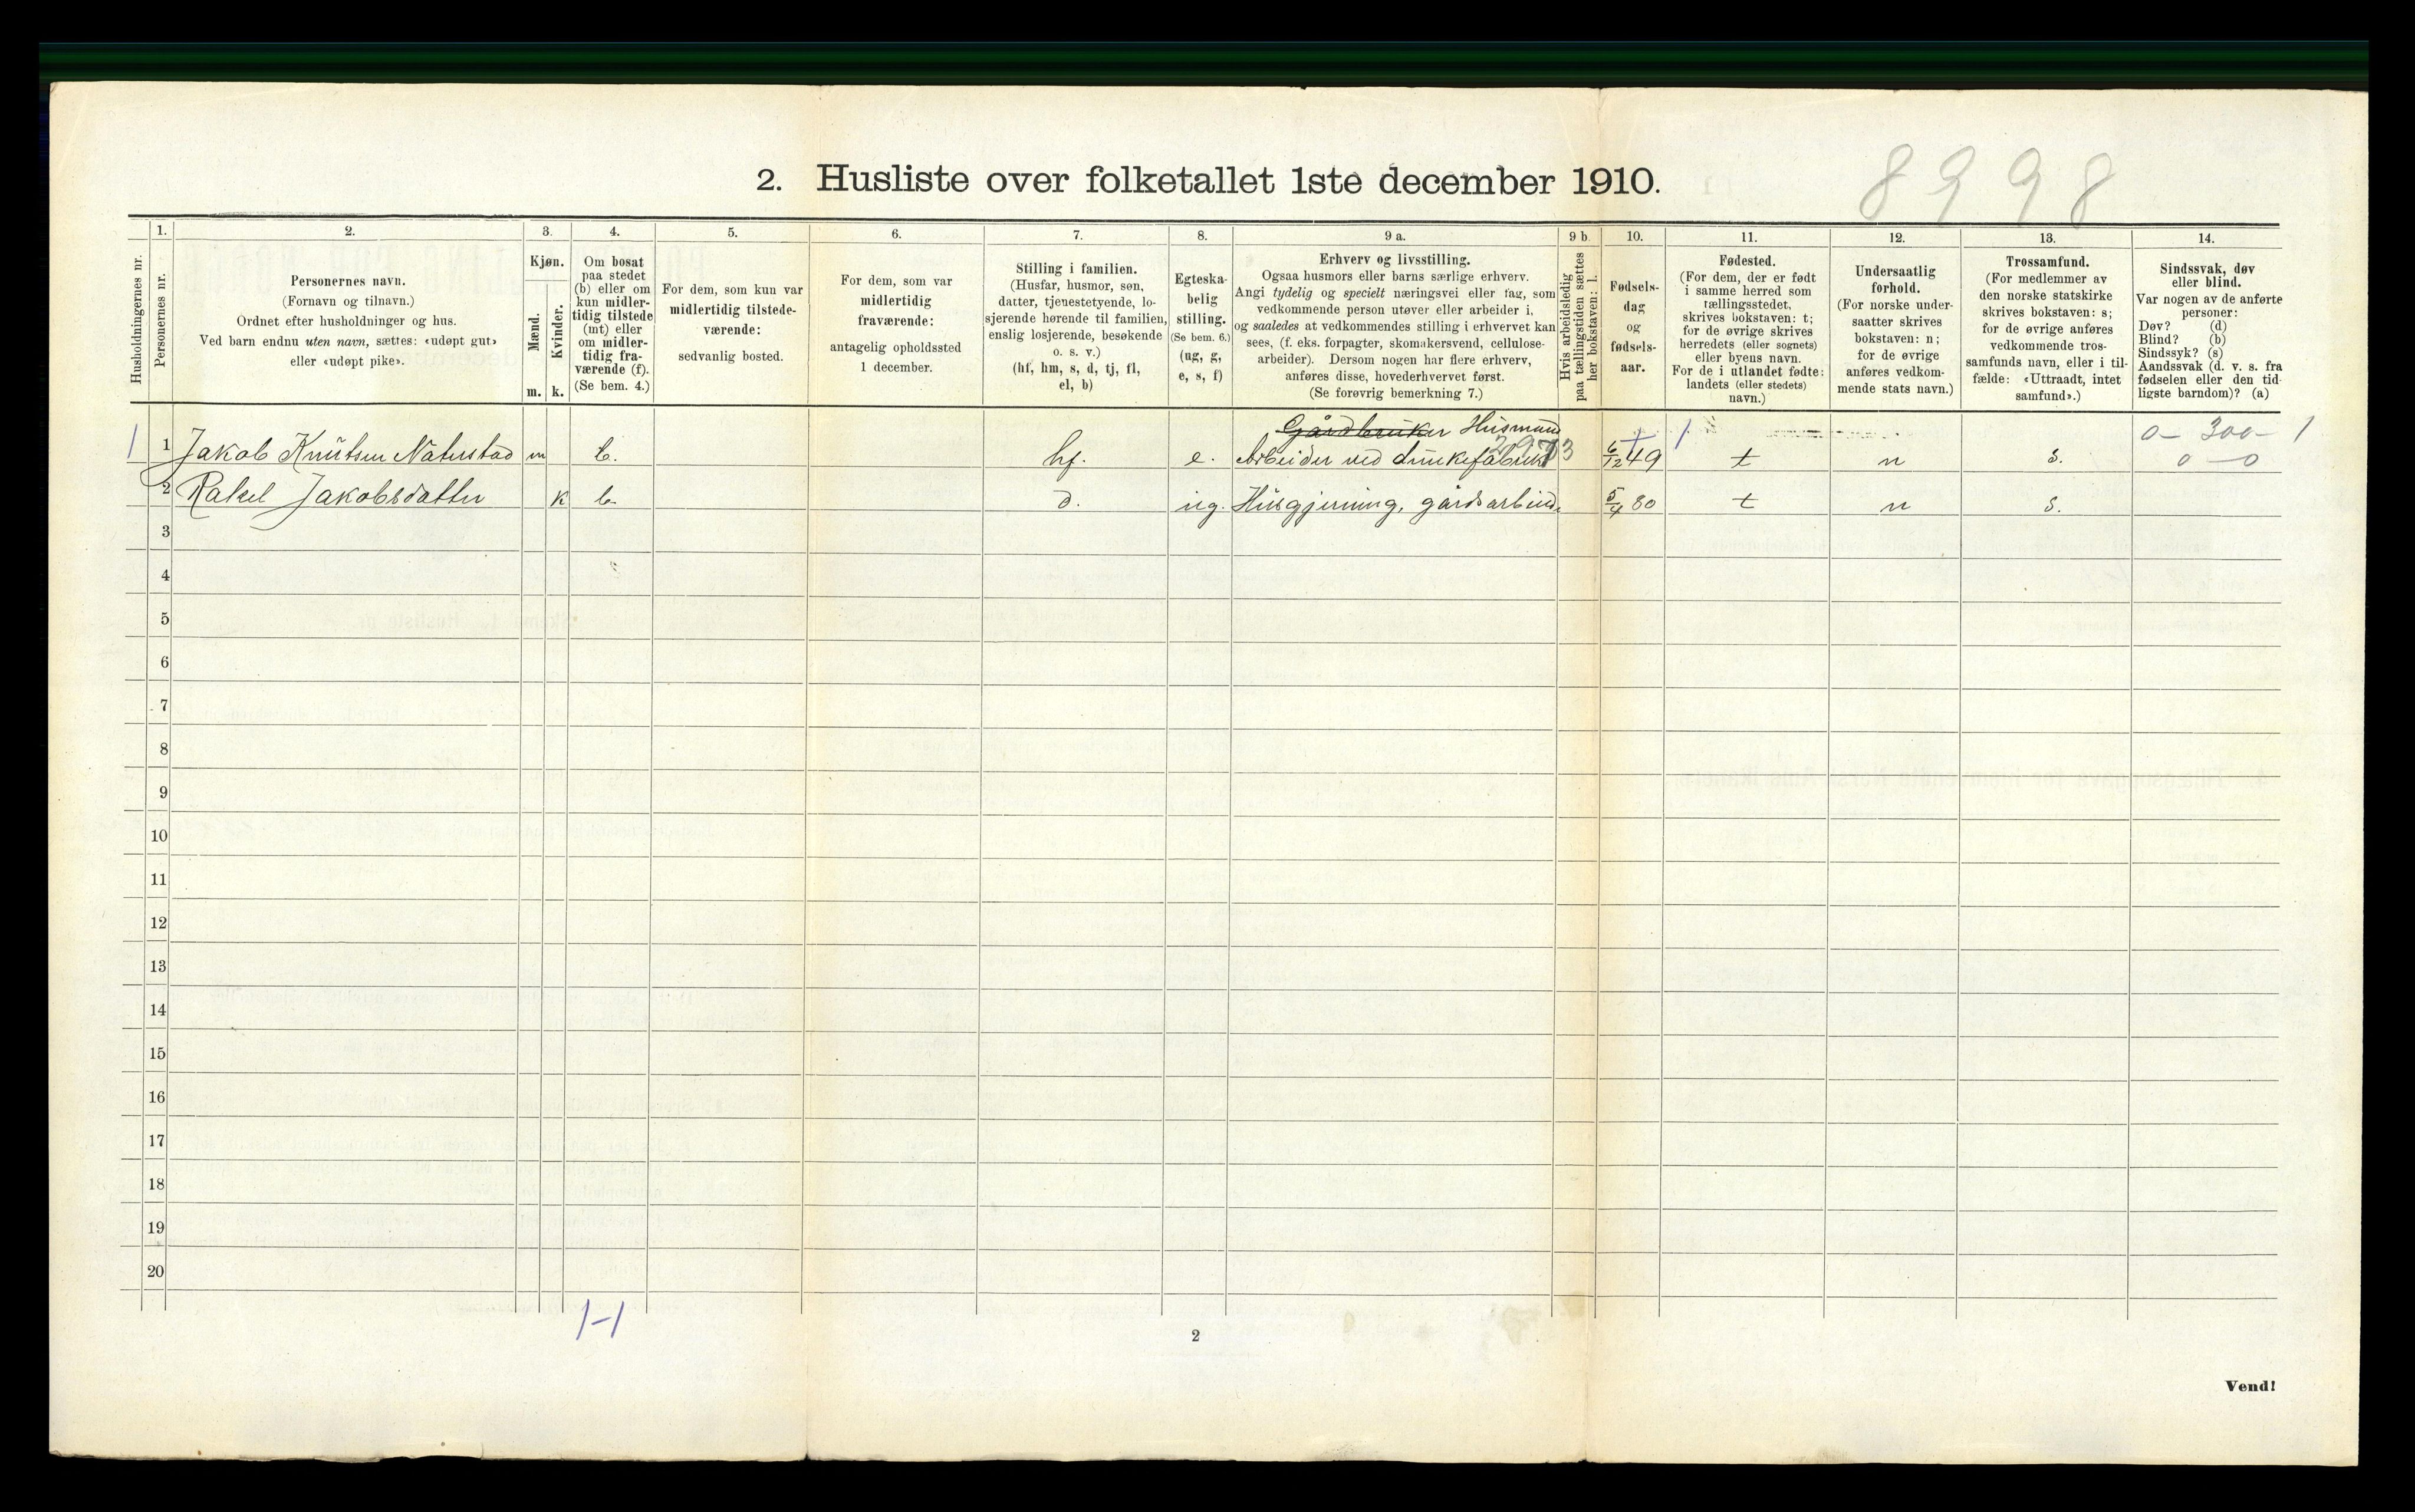 8998
2. Husliste over folketallet 1ste december 1910.
Husholdningernes nr.
1.
Personernes nr.
2.
Personernes navn.
(Fornavn og tilnavn.)
Ordnet efter husholdninger og hus.
Ved barn endnu uten navn, sættes: «udøpt gut»
eller «udøpt pike».
3.
Kjøn.
Mænd.
m.
Kvinder.
k.
4.
Om bosat
paa stedet
(b) eller om
kun midler-
tidig tilstede
(mt) eller
om midler-
tidig fra-
værende (f).
(Se bem. 4.)
5.
For dem, som kun var
midlertidig tilstede-
værende:
sedvanlig bosted.
6.
For dem, som var
midlertidig
fraværende:
antagelig opholdssted
1 december.
7.
Stilling i familien.
(Husfar, husmor, søn,
datter, tjenestetyende, lo-
sjerende hørende til familien,
enslig losjerende, besøkende
o. s. v.)
(hf, hm, s, d, tj, fl,
el, b)
8.
Egteska-
belig
stilling.
(Se bem. 6.)
(ug, g,
e, s, f)
9 a.
Erhverv og livsstilling.
Ogsaa husmors eller barns særlige erhverv.
Angi tydelig og specielt næringsvei eller fag, som
vedkommende person utøver eller arbeider i,
og saaledes at vedkommendes stilling i erhvervet kan
sees, (f. eks. forpagter, skomakersvend, cellulose-
arbeider). Dersom nogen har flere erhverv,
anføres disse, hovederhvervet først.
(Se forøvrig bemerkning 7.)
9 b.
Hvis arbeidsledig
paa tællingstiden sættes
her bokstaven: l.
10.
Fødsels-
dag
og
fødsels-
aar.
11.
Fødested.
(For dem, der er født
i samme herred som
tællingsstedet,
skrives bokstaven: t;
for de øvrige skrives
herredets (eller sognets)
eller byens navn.
For de i utlandet fødte:
landets (eller stedets)
navn.)
12.
Undersaatlig
forhold.
(For norske under-
saatter skrives
bokstaven: n;
for de øvrige
anføres vedkom-
mende stats navn.)
13.
Trossamfund.
(For medlemmer av
den norske statskirke
skrives bokstaven: s;
for de øvrige anføres
vedkommende tros-
samfunds navn, eller i til-
fælde: «Uttraadt, intet
samfund».)
14.
Sindssvak, døv
eller blind.
Var nogen av de anførte
personer:
Døv? (d)
Blind? (b)
Sindssyk? (s)
Aandssvak (d. v. s. fra
fødselen eller den tid-
ligste barndom)? (a)
Gårdbruker Husmand 0 - 300 - 1
1 1 Jakob Knutsen Naterstad m b. hf. e. Arbeider ved 6/12 49 t n s. 0 - 0
2 Rakel Jakobsdatter k b. d. ug. Husgjerning, gårdsarbeid. 5/4 80 t n s.
3
4
5
6
7
8
9
10
11
12
13
14
15
16
17
18
19
20
1-1
2
Vend!